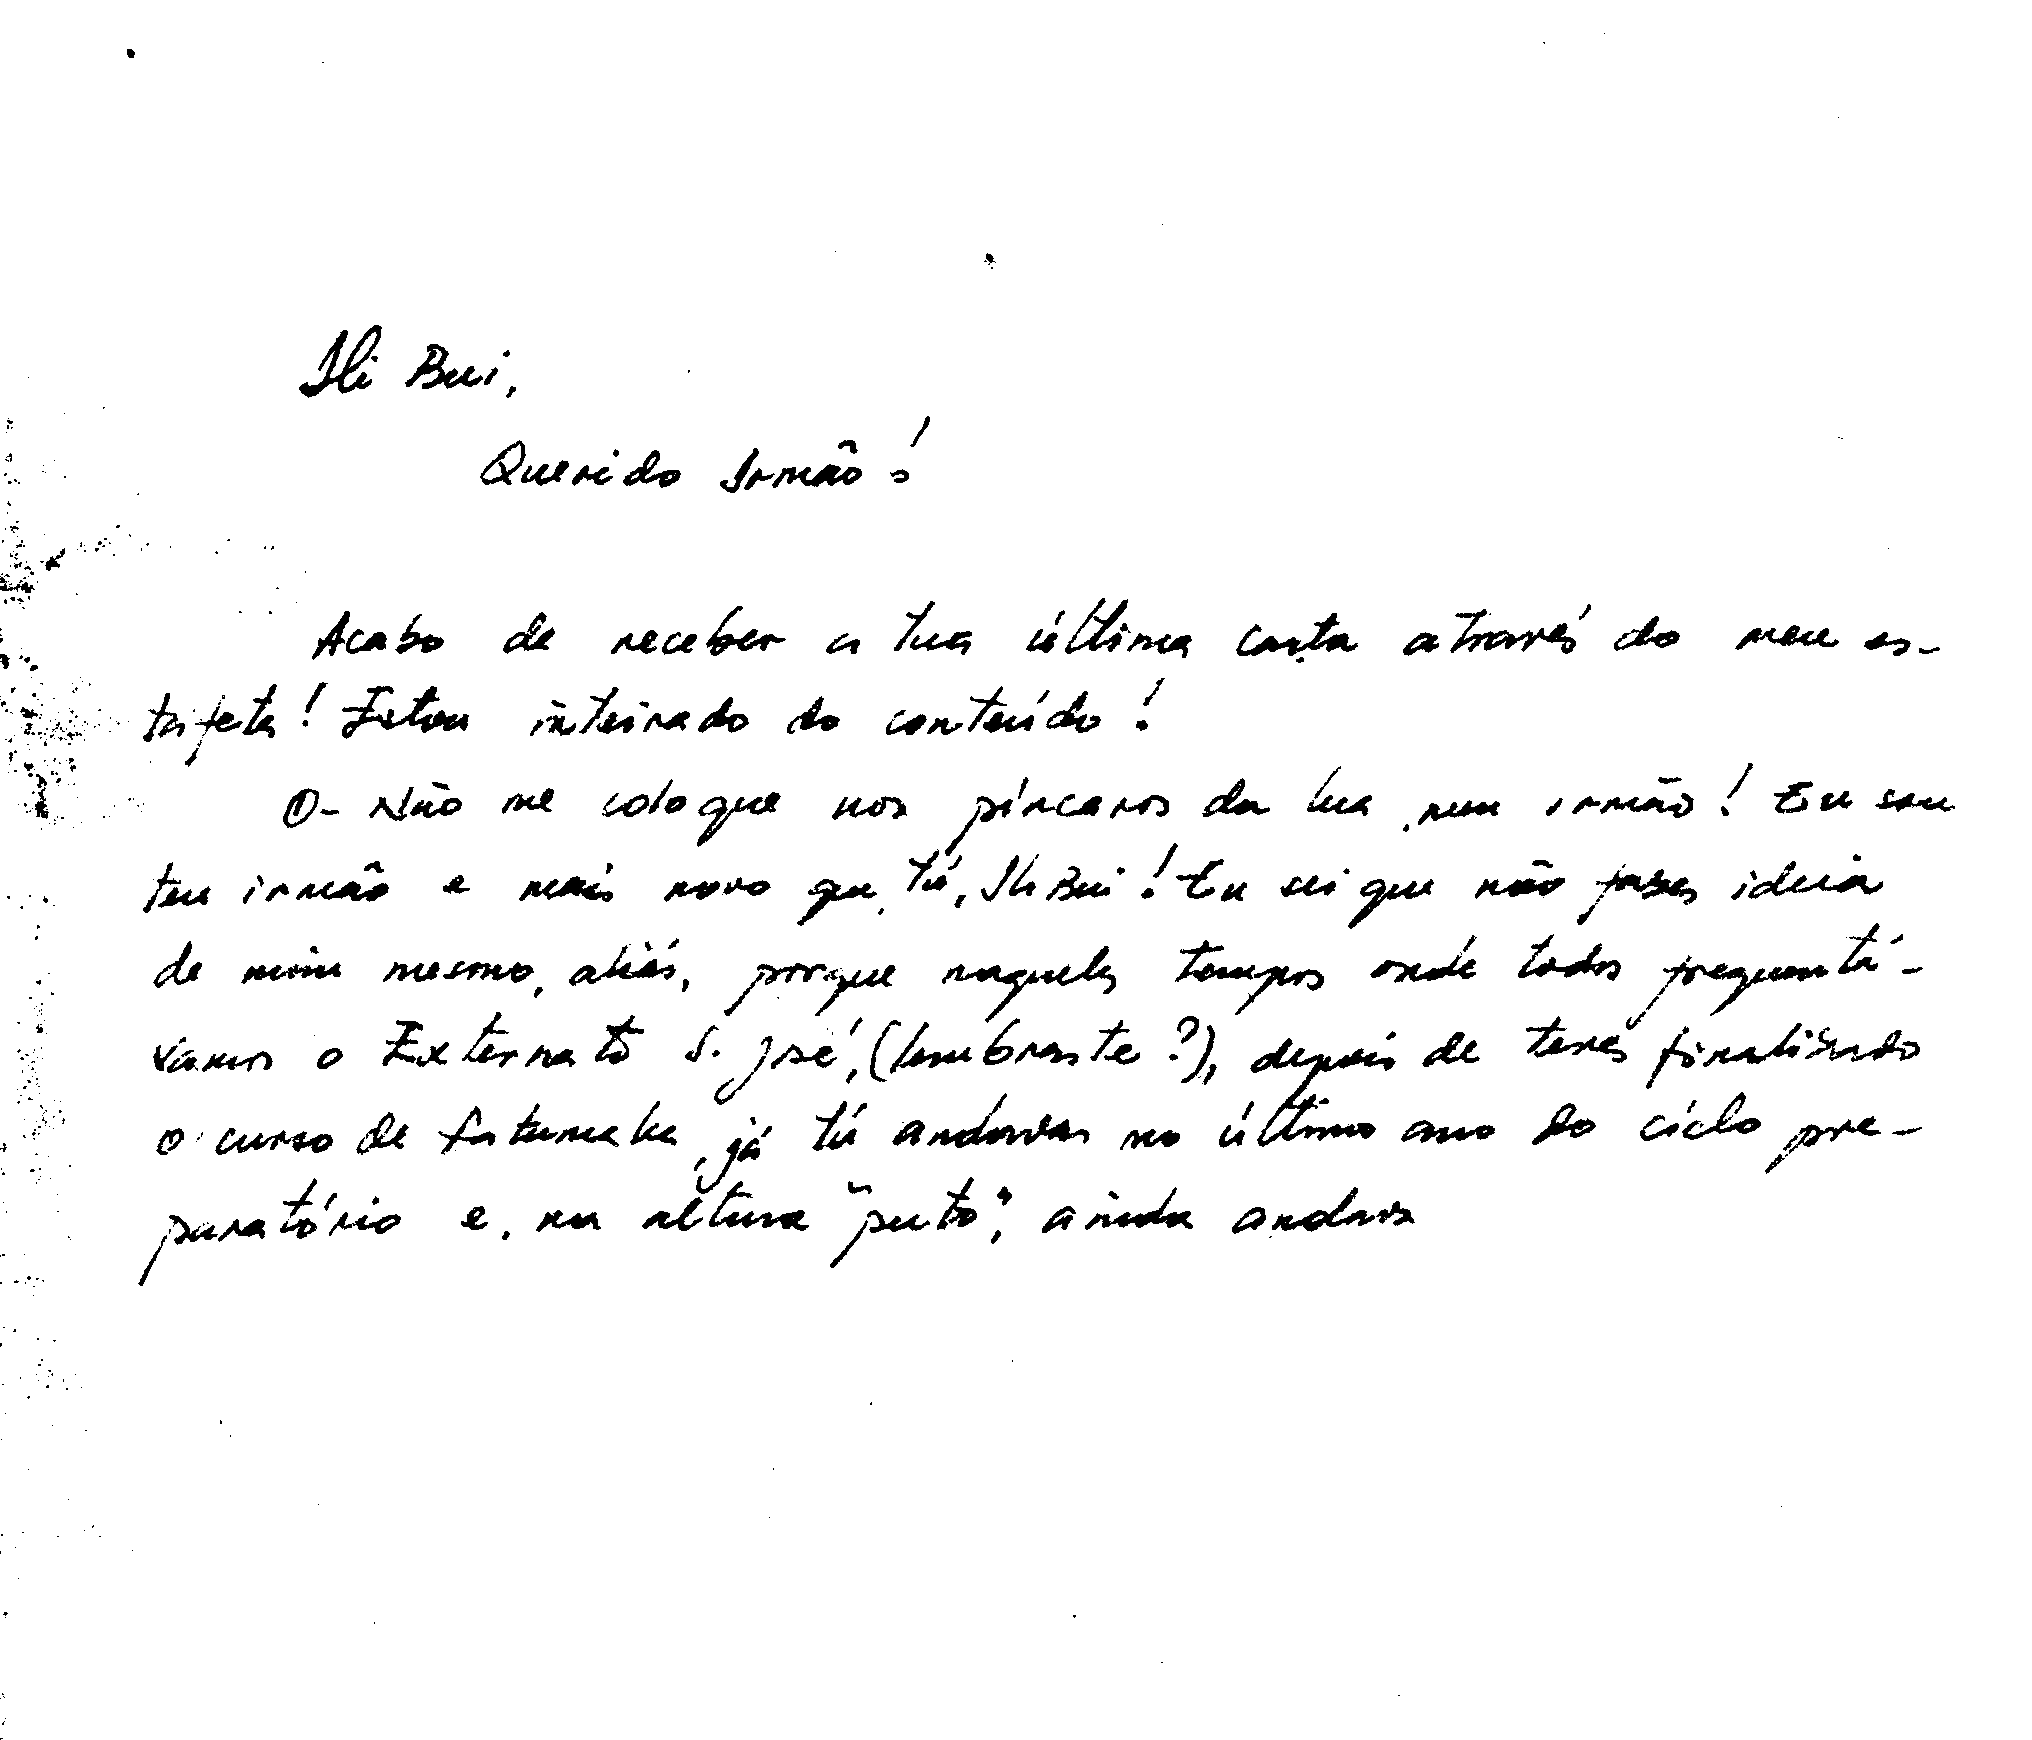 Ili Bui,
Querido Irmão!
Acabo de receber a tua última carta através do meu es-
tafeta! Estou inteirado do conteúdo!
O- Não me coloque nos píncaros da lua, meu irmão! Eu sou
teu irmão e mais novo que tú, Ili Bui! Eu sei que não fazes ideia
de mim mesmo, aliás, porque naqueles tempos onde todos frequentá-
vamos o Externato S. José, (lembraste?), depois de teres finalizado
o curso de Fatumaka, já tú andavas no último ano do ciclo pre-
paratório e, na altura "puto", ainda andava